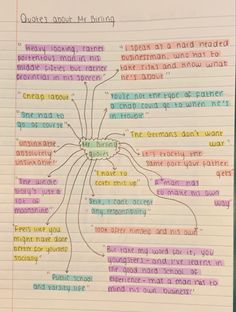 Quotes about Mr Birling
"Heavy looking, rather
portentous man in his
middle fifties but rather
provincial in his speech"
"I speak as a hard headed
businessman, who has to
take risks and know what
he's about"
"Cheap labour"
"You're not the type of father
a chap could go to when he's
in trouble"
"She had to
go of course"
"The Germans don't want
war"
"unsinkable
absolutely
unsinkable"
Mr. Birling
Quotes
"It's exactly the
same port your father
gets"
"I have to
cover this up"
"The whole
story's just a
lot of
moonshine"
"a man has
to make his own
way"
"Still, I can't accept
any responsibility"
"look after himself and his own"
"Feels like you
might have done
better for yourself
socially"
"But take my word for it, you
youngsters - and I've learnt in
the good hard school of
experience - that a man has to
mind his own business"
"Public school
and varsity life"